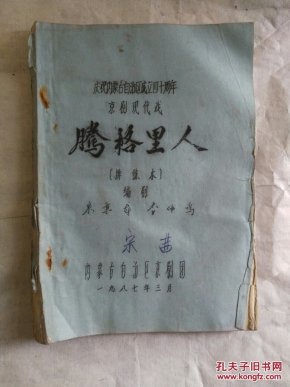 庆祝内蒙古自治区成立四十周年
京剧现代戏
腾格里人
（排练本）
编剧
宋茜
内蒙古自治区京剧团
一九八七年三月
孔夫子旧书网